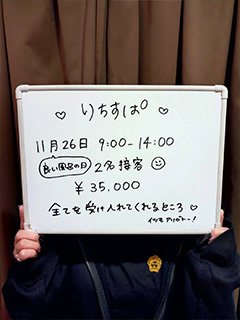 ♡ りちすぱ ♡
11月26日 9:00-14:00
良い風呂の日 2名接客
¥35.000
全てを受け入れてくれるところ♡
イツモ アリガトー!